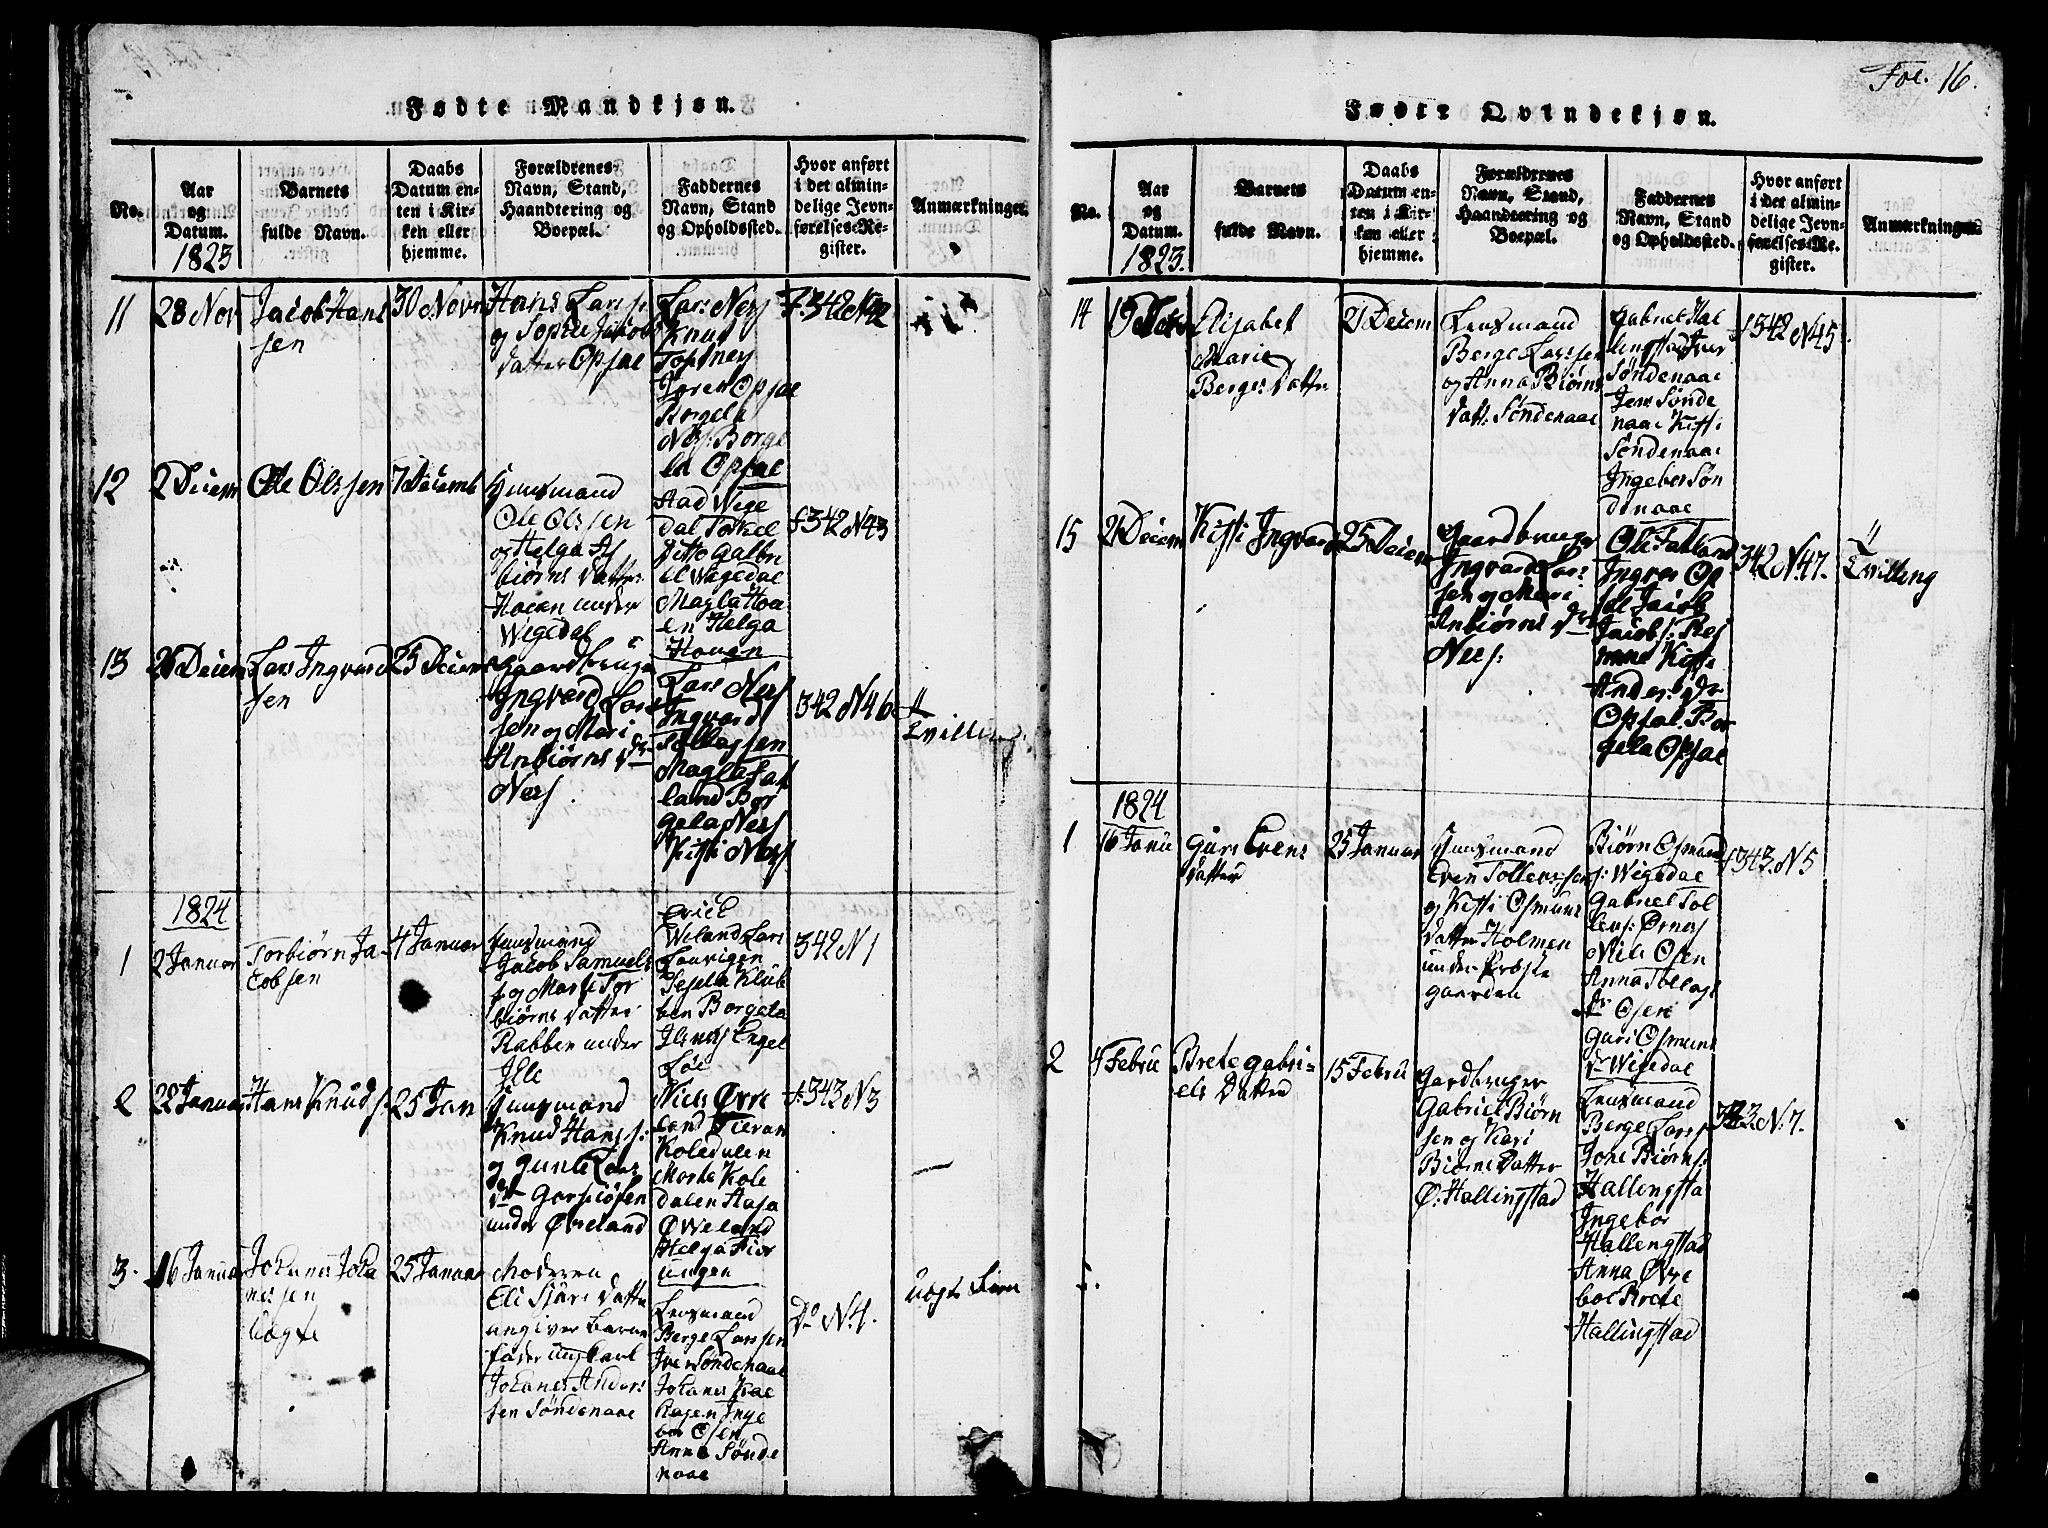 Fol. 16.
Fødte Mandkjøn.
No.
Aar
og
Datum.
1823
Barnets
fulde Navn.
Daabs
Datum en-
ten i Kir-
ken eller
hjemme.
Forældrenes
Navn, Stand,
Haandtering og
Boepæl.
Faddernes
Navn, Stand
og Opholdssted.
Hvor anført
i det almin-
delige Jevn-
førelses-Re-
gister.
Anmærkninger.
11
28 Nov
Jacob Hans
sen
30 Novr
Hans Larss
og Sophie Jakobs
datter Opsae
Lars Ners
Knud
Topnes
Joren Opsae
Borgela
Ners: Borge
la Opsae
f. 342 N 42
12
2 Decem
Ole Olssen
7 Decemb
Huusmand
Ole Olssen
og Helga As
biørns datter
Hovan under
Wegedal
Aad Wege
dal Torkel
ditto Gabri
el Wegedal
Magla Hov
en Helga
Hoven
f 342 N 43
13
21 Decem
Lars Ingvard
sen
25 Decem
Gaardbruge
Ingvard Lars
sen og Mari
Anbiørns dr
Ners
Lars Ners
Ingvard
Tollagsen
Magla Fat
land Bor
gela Ners
Kisti Ners
342 N 46
Tvilling
1824
1
2 Januar
Torbiørn Ja-
cobsen
4 Januar
Huusmand
Jacob Samuels
s og Marte Tor
biørns datter
Rabben under
Ilse
Eric
Weland Lars
Louvigen
Sesela Klub
ben Borgela
Ilsnes Engel
Løe
342 N 1
2
22 Januar
Hans Knuds:
25 Jan
Huusmand
Knud Hanss:
og Gunle Lars
dr
under Øveland
Niels Øvre
land
Koledalen
Marte Kole
dalen Aasa
Øweland
Helga Fior
ungen
f 343 N 3
3.
16 Januar
Johanes Joha
nessen
uægte
25 Januar
Moderen
Eli Sjurs datte
angiver barne
fader ungkarl
Johanes Anders
sen Søndenaae
Lensmand
Berge Larssen
Iver Søndenaae
Johanes Krae
Rasen Inge
bor Osen
Anna Sønde
naae
Do N. 4.
Fødte Qvindekjøn.
No.
Aar
og
Datum.
1823.
Barnets
fulde Navn.
Daabs
Datum en-
ten i Kir-
ken eller
hjemme.
Forældrenes
Navn, Stand,
Haandtering og
Boepæl.
Faddernes
Navn, Stand
og Opholdssted.
Hvor anført
i det almin-
delige Jevn-
førelses-Re-
gister.
Anmærkninger.
14
19
Elisabet
Marie
Berges Datte
21 Decem
Lensmand
Berge Larssen
og Anna Biørns
datt: Søndenaae
Gabriel Hal
lingstad Iver
Søndenaae
Jens Sønde
naae Kisti
Søndenaae
Ingebor Søn
denaae
f 342 N 45
15
21 Decem
Kisti Ingvards
25 Decem
Gaardbruger
Ingvard Lars
sen og Mari
Anbiørns dr
Ners:
Ole Fatland
Ingver Op
sal Jacob
Jacobs: Res
mne Kisti
Anders dr
Opsal Bor
gela Opsae
342 N. 47.
Tvilling
1824
1
16 Janu
Guri Evens
datter
25 Januar
Huusmand
Even Tollevssen
og Kisti Osmuns
datter Holmen
under Præste
gaarden
Biørn Osmund
s: Wegedal
Gabriel Tol
levs: Ørnes
Niels Osen
Anna Tollags
dr Osen
Guri Osmuns
dr Wegedal
f 343. N 5
2
4 Febru
Brete Gabri-
els Datter
15 Febru
Gardbruger
Gabriel Biørn
sen og Kari
Biørns datter
Ø: Hallingstad
Lensmand
Berge Larss
Jone Biørns:
Hallingsta
Ingebor
Hallengstad
Anna Øvre
boe Brete
Hallingstad
343. N. 7.